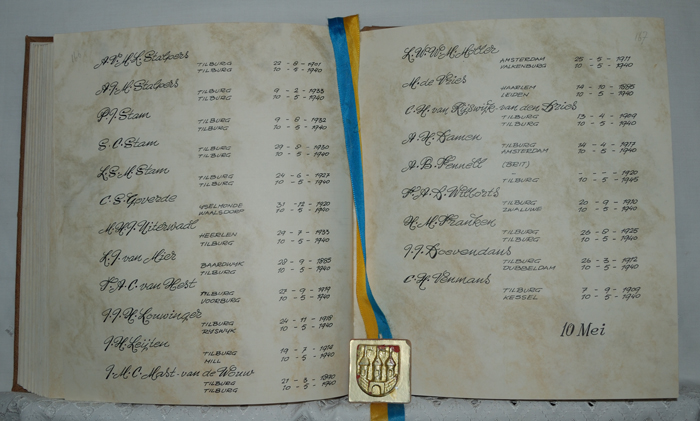 A.P.M.L. Stalpers
TILBURG 22 - 8 - 1901
TILBURG 10 - 5 - 1940
A.J.M. Stalpers
TILBURG 9 - 2 - 1938
TILBURG 10 - 5 - 1940
P.J. Stam
TILBURG 9 - 6 - 1932
TILBURG 10 - 5 - 1940
S.C. Stam
TILBURG 29 - 8 - 1930
TILBURG 10 - 5 - 1940
L.E.M. Stam
TILBURG 24 - 6 - 1927
TILBURG 10 - 5 - 1940
C.S. Goverde
IJSELMONDE 31 - 12 - 1920
WAALSDORF 10 - 5 - 1940
M.H.J. Uiterwadl
HEERLEN 29 - 7 - 1933
TILBURG 10 - 5 - 1940
L.J. van Mier
BAARDWIJK 28 - 9 - 1885
TILBURG 10 - 5 - 1940
F.A.C. van Hest
TILBURG 23 - 9 - 1919
VOORBURG 10 - 5 - 1940
J.J.H. Louwinger
TILBURG 24 - 11 - 1918
RIJSWIJK 10 - 5 - 1940
J.H. Leijten
TILBURG 19 - 7 - 1914
MILL 10 - 5 - 1940
J.M.C. Mast-van de Wouw
TILBURG 21 - 3 - 1890
TILBURG 10 - 5 - 1940
L.W.W.M. Moller
AMSTERDAM 25 - 5 - 1911
VALKENBURG 10 - 5 - 1940
M. de Vries
HAARLEM 14 - 10 - 1895
LEIDEN 10 - 5 - 1940
C.H. van Rijswijk-van den Dries
TILBURG 13 - 4 - 1909
TILBURG 10 - 5 - 1940
A.H. Damen
TILBURG 14 - 4 - 1917
AMSTERDAM 10 - 5 - 1940
A.B. Fennell
(BRIT) - - - - 1920
TILBURG 10 - 5 - 1945
F.A.D. Willorts
TILBURG 20 - 9 - 1910
ZWALUWE 10 - 5 - 1940
H.M. Franken
TILBURG 26 - 8 - 1925
TILBURG 10 - 5 - 1940
J.J. Hoevendans
TILBURG 26 - 3 - 1912
DUBBELDAM 10 - 5 - 1940
C.H. Venmans
TILBURG 7 - 9 - 1909
KESSEL 10 - 5 - 1940
10 Mei